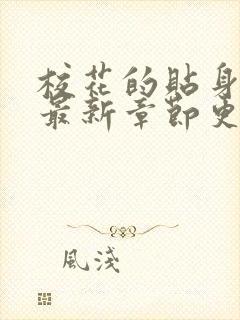 校花的貼身
最新章節更
風淺